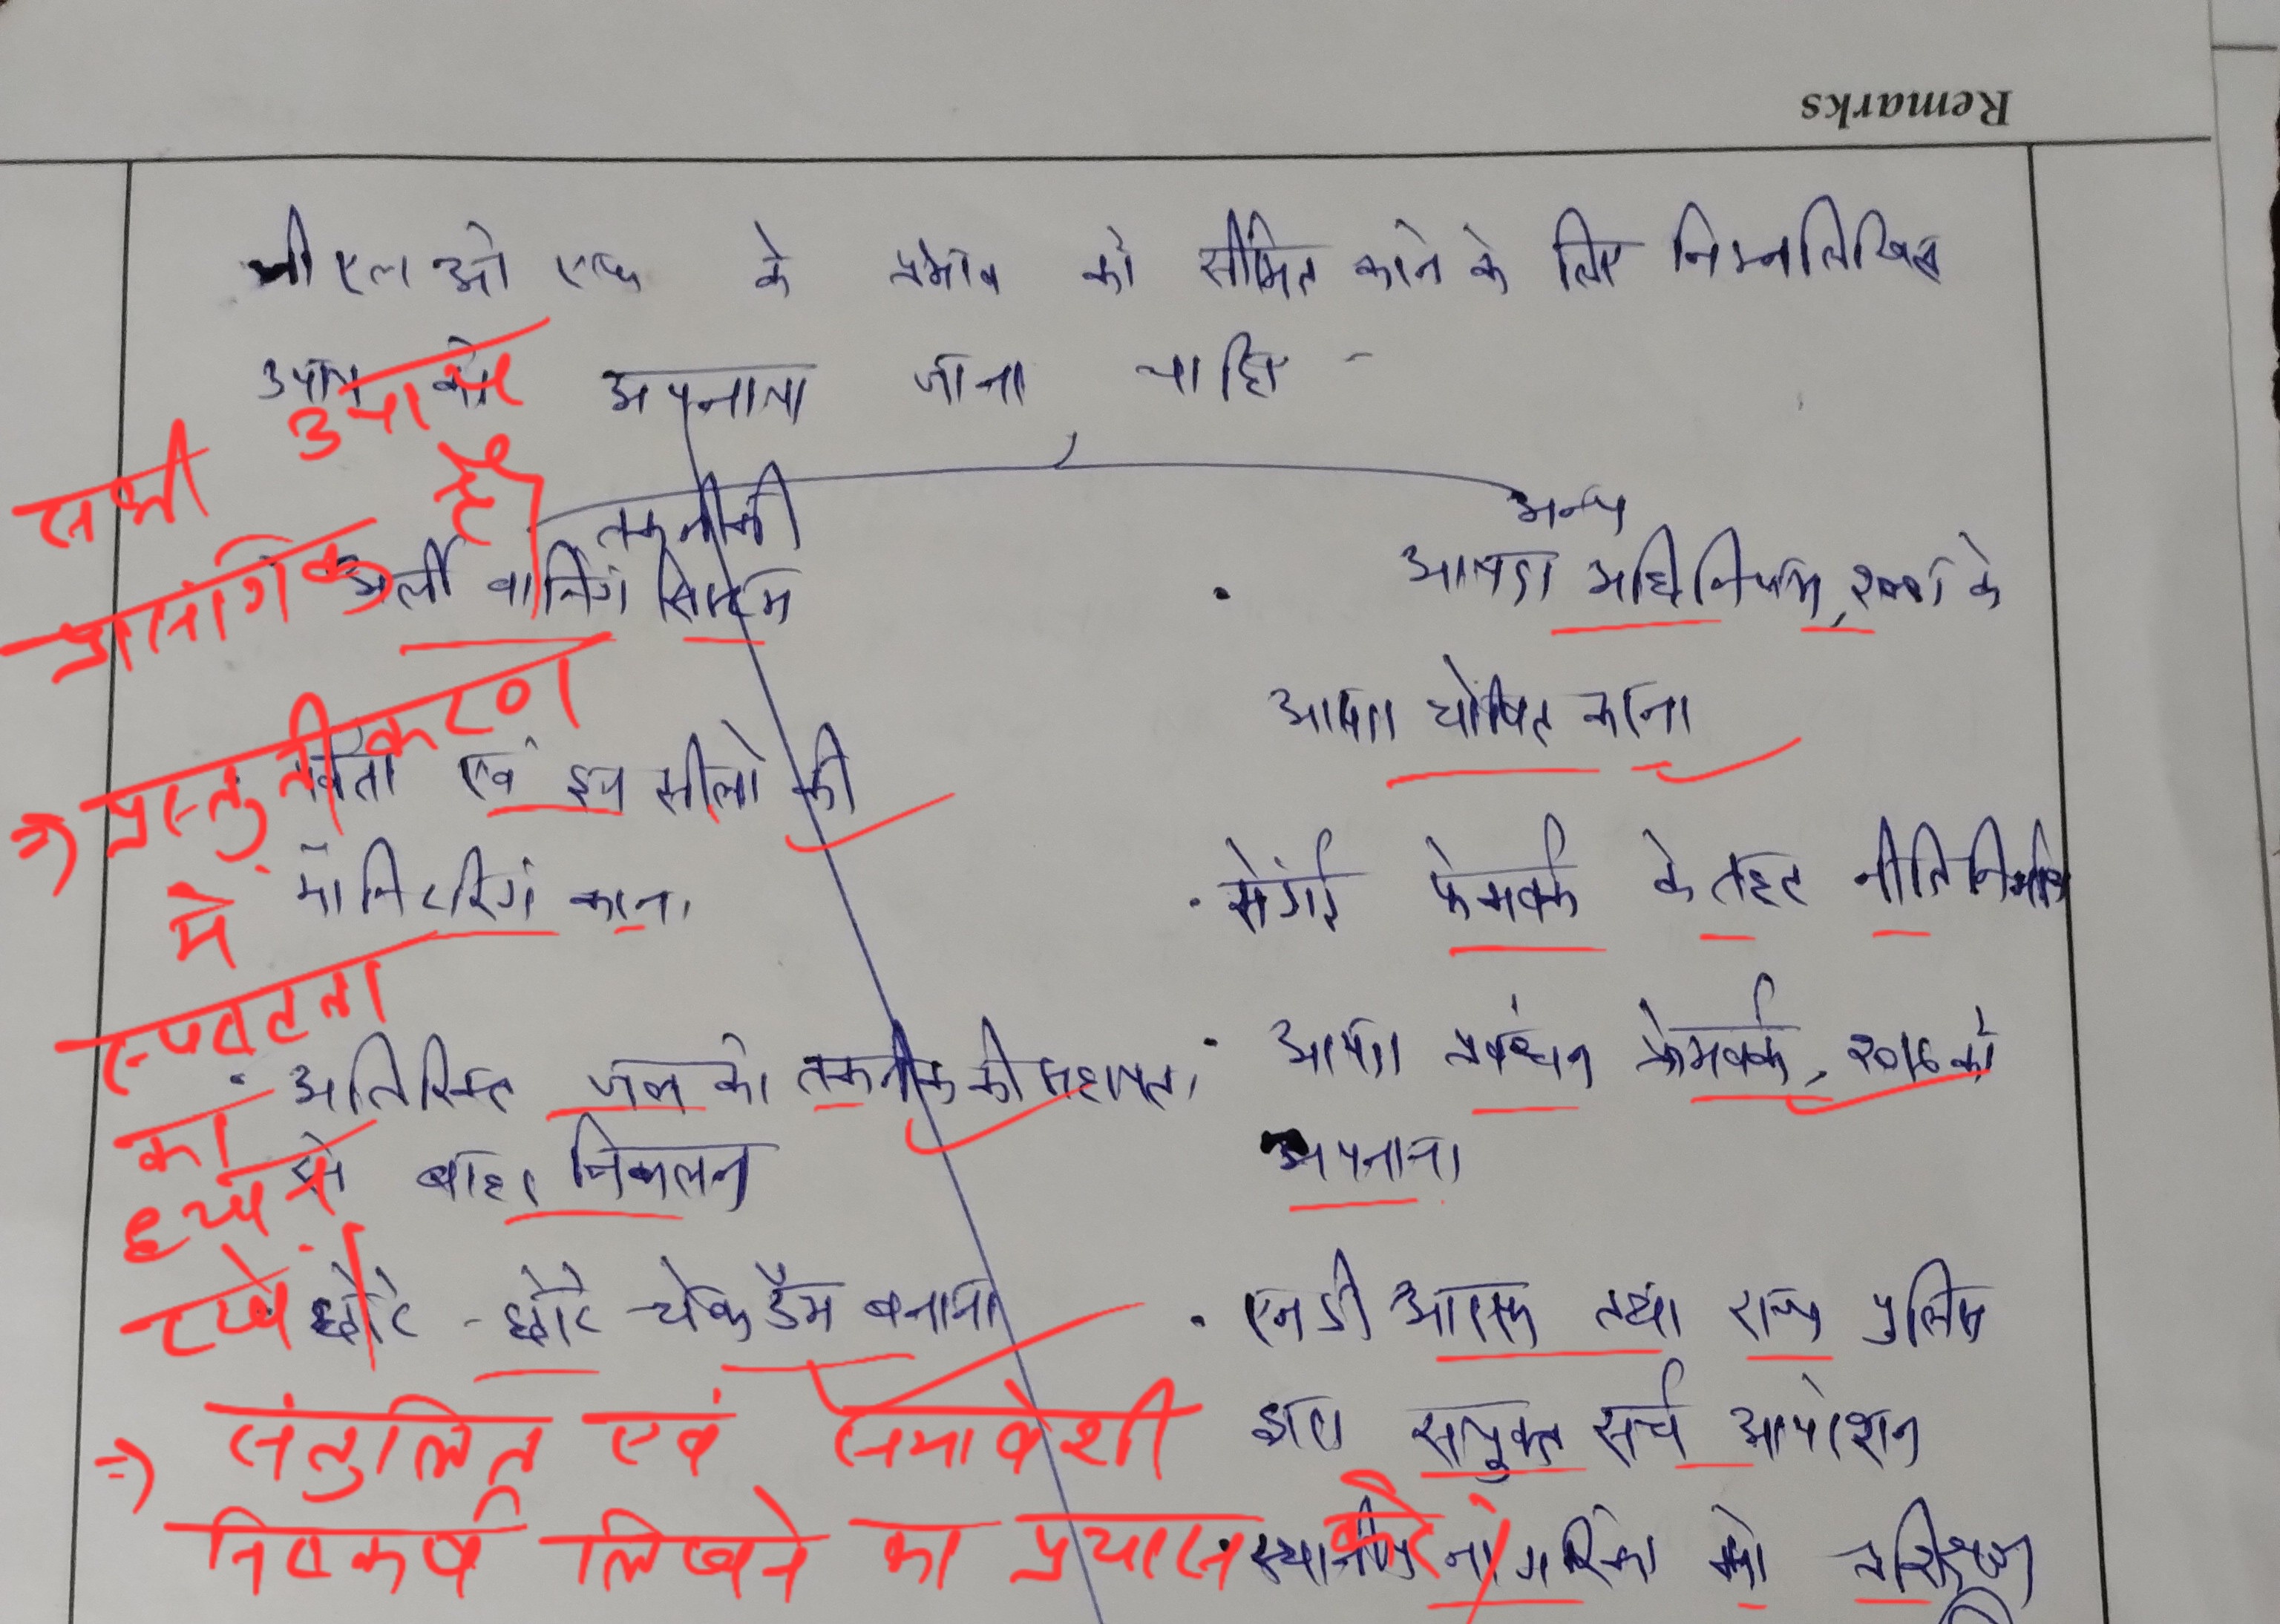 Remarks
जीएलओएफ के प्रभाव को सीमित करने के लिए निम्नलिखित
उपाय को अपनाया जाना चाहिए -
तकनीकी
अर्ली वार्निंग सिस्टम
एवं इन झीलों की
मॉनिटरिंग करना
अतिरिक्त जल को तकनीक की सहायता
से बाहर निकलन
छोटे - छोटे चेक डैम बनाना
अन्य
• आपदा अधिनियम, 2005 के
आपदा घोषित करना
• सेंडाई फ्रेमवर्क के तहत नीति निर्माण
• आपदा प्रबंधन फ्रेमवर्क, 2016 को
अपनाना
• एनडीआरएफ तथा राज्य पुलिस
द्वारा संयुक्त सर्च आपरेशन
• स्थानीय नागरिको को प्रशिक्षण
सभी उपाय
प्रासंगिक हैं।
→ प्रस्तुतीकरण
मे
स्पष्टता
का
ध्यान
रखें।
→ संतुलित एवं समावेशी
निष्कर्ष लिखने का प्रयास करें।